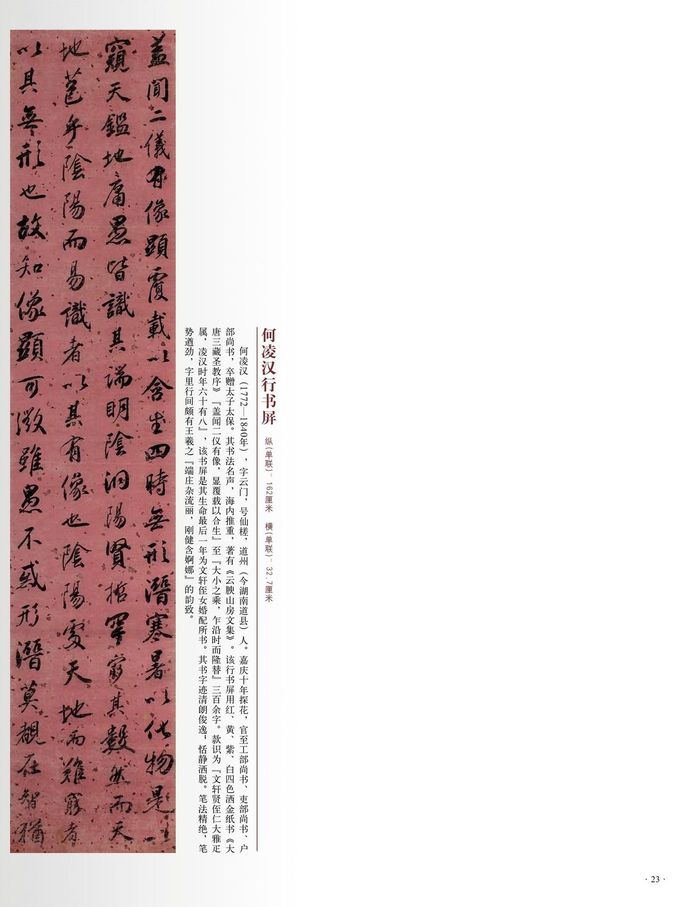 何凌汉行书屏 纵(单联)：162厘米 横(单联)：32.7厘米
何凌汉（1772—1840年），字云门，号仙槎，道州（今湖南道县）人。嘉庆十年探花，官至工部尚书、吏部尚书、户
部尚书，卒赠太子太保。其书法名声，海内推重，著有《云腴山房文集》。该行书屏用红、黄、紫、白四色洒金纸书《大
唐三藏圣教序》『盖闻二仪有像，显覆载以合生』至『大小之乘，乍沿时而隆替』三百余字。款识为『文轩贤侄仁大雅疋
属，凌汉时年六十有八』，该书屏是其生命最后一年为文轩侄女婚配所书。其书字迹清朗俊逸，恬静洒脱。笔法精绝，笔
势遒劲，字里行间颇有王羲之『端庄杂流丽，刚健含婀娜』的韵致。
蓋聞二儀有像顯覆載以含生四時無形潛寒暑以化物是以
窺天鑑地庸愚皆識其端明陰洞陽賢哲罕窮其數然而天
地苞乎陰陽而易識者以其有像也陰陽處天地而難窮者
以其無形也故知像顯可徵雖愚不惑形潛莫覩在智猶
·23·